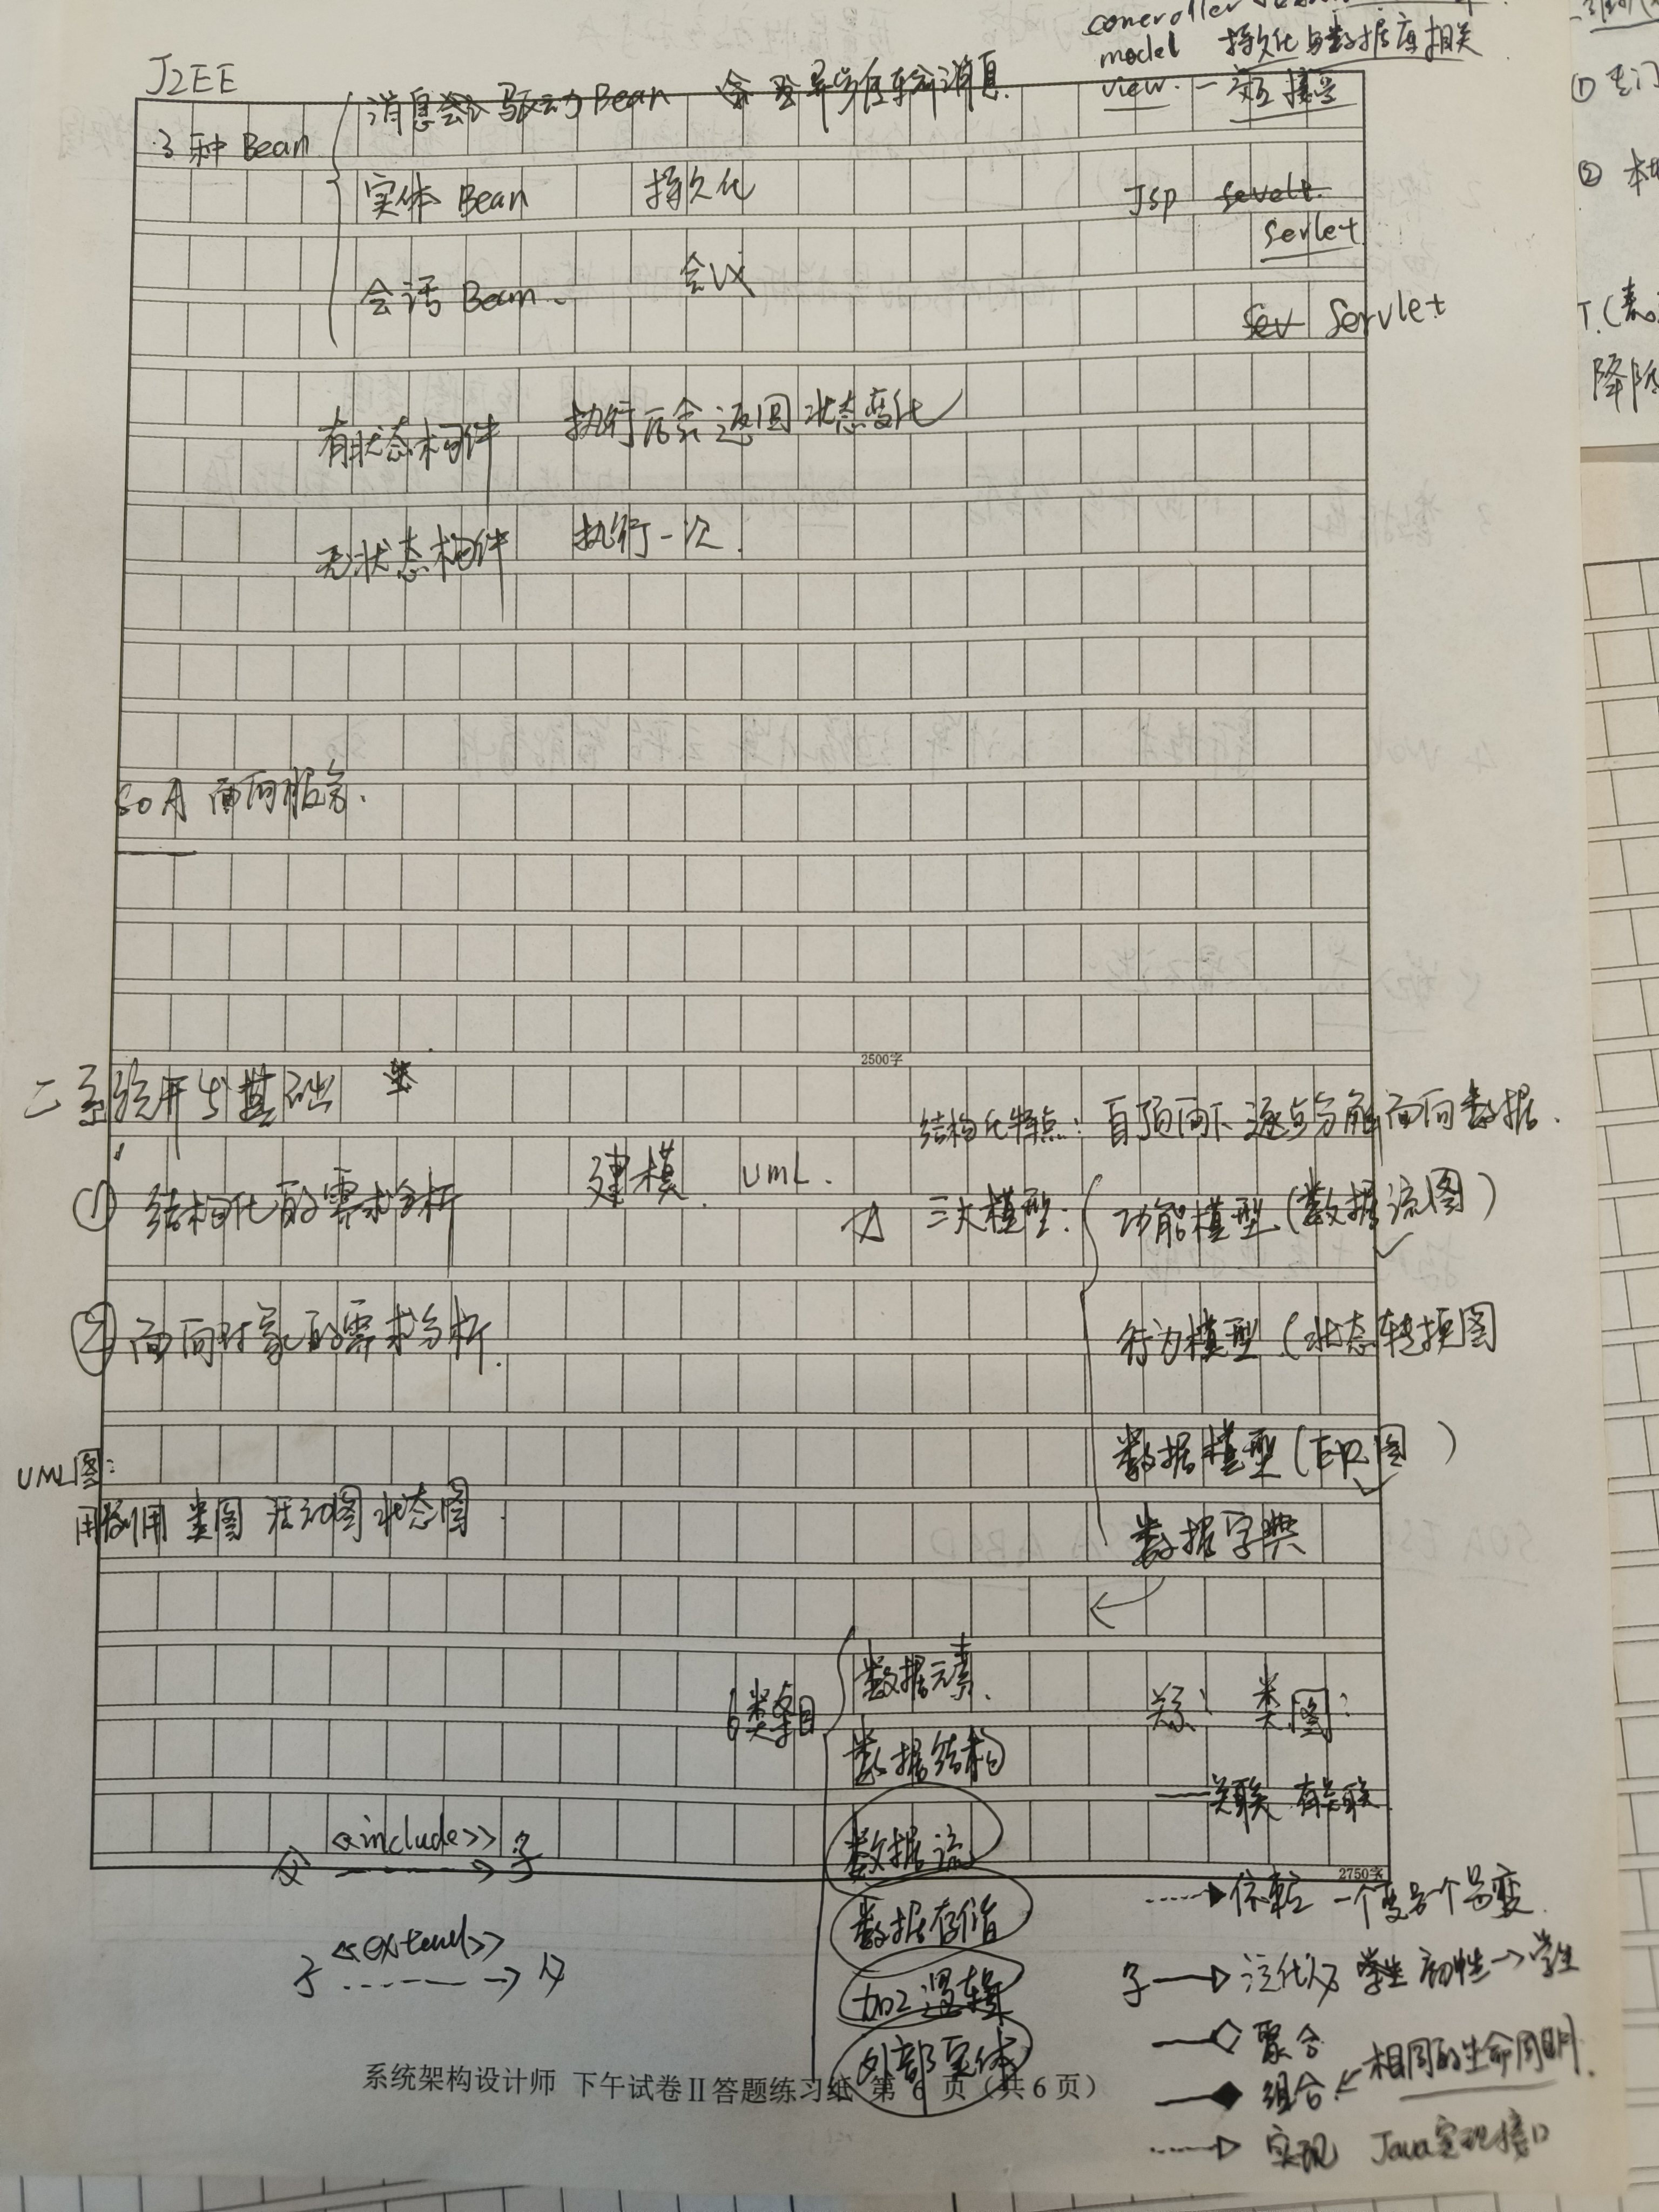 controller
model 持久化与数据库相关
view. 一 交互 接受
J2EE
3种 Bean
消息驱动Bean 异步传输消息.
实体 Bean 持久化
会话 Bean. 会议
Jsp sevelt.
Serlet
Sev Servlet
有状态构件 执行后会返回状态变化
无状态构件 执行一次.
SOA 面向服务.
2500字
二系统开发基础
结构化特点: 自顶而下 逐步分解 面向数据.
① 结构化的需求分析 建模. UML.
三大模型:
功能模型(数据流图)
② 面向对象的需求分析.
行为模型(状态转换图
数据模型(ER图)
数据字典
UML图:
用例用 类图 活动图 状态图.
6类条目
数据元素.
数据结构
数据流
数据存储
加工逻辑
外部实体
关系: 类图:
关联 有关联
2750字
父 <include>> 子
子 <<extend>> 父
依赖 一个变另一个
子 泛化父 学生
聚合
组合 相同的生命周期.
实现 Java实现接口
系统架构设计师 下午试卷Ⅱ答题练习纸 第 6 页(共6页)
① 专门
② 本
降阶